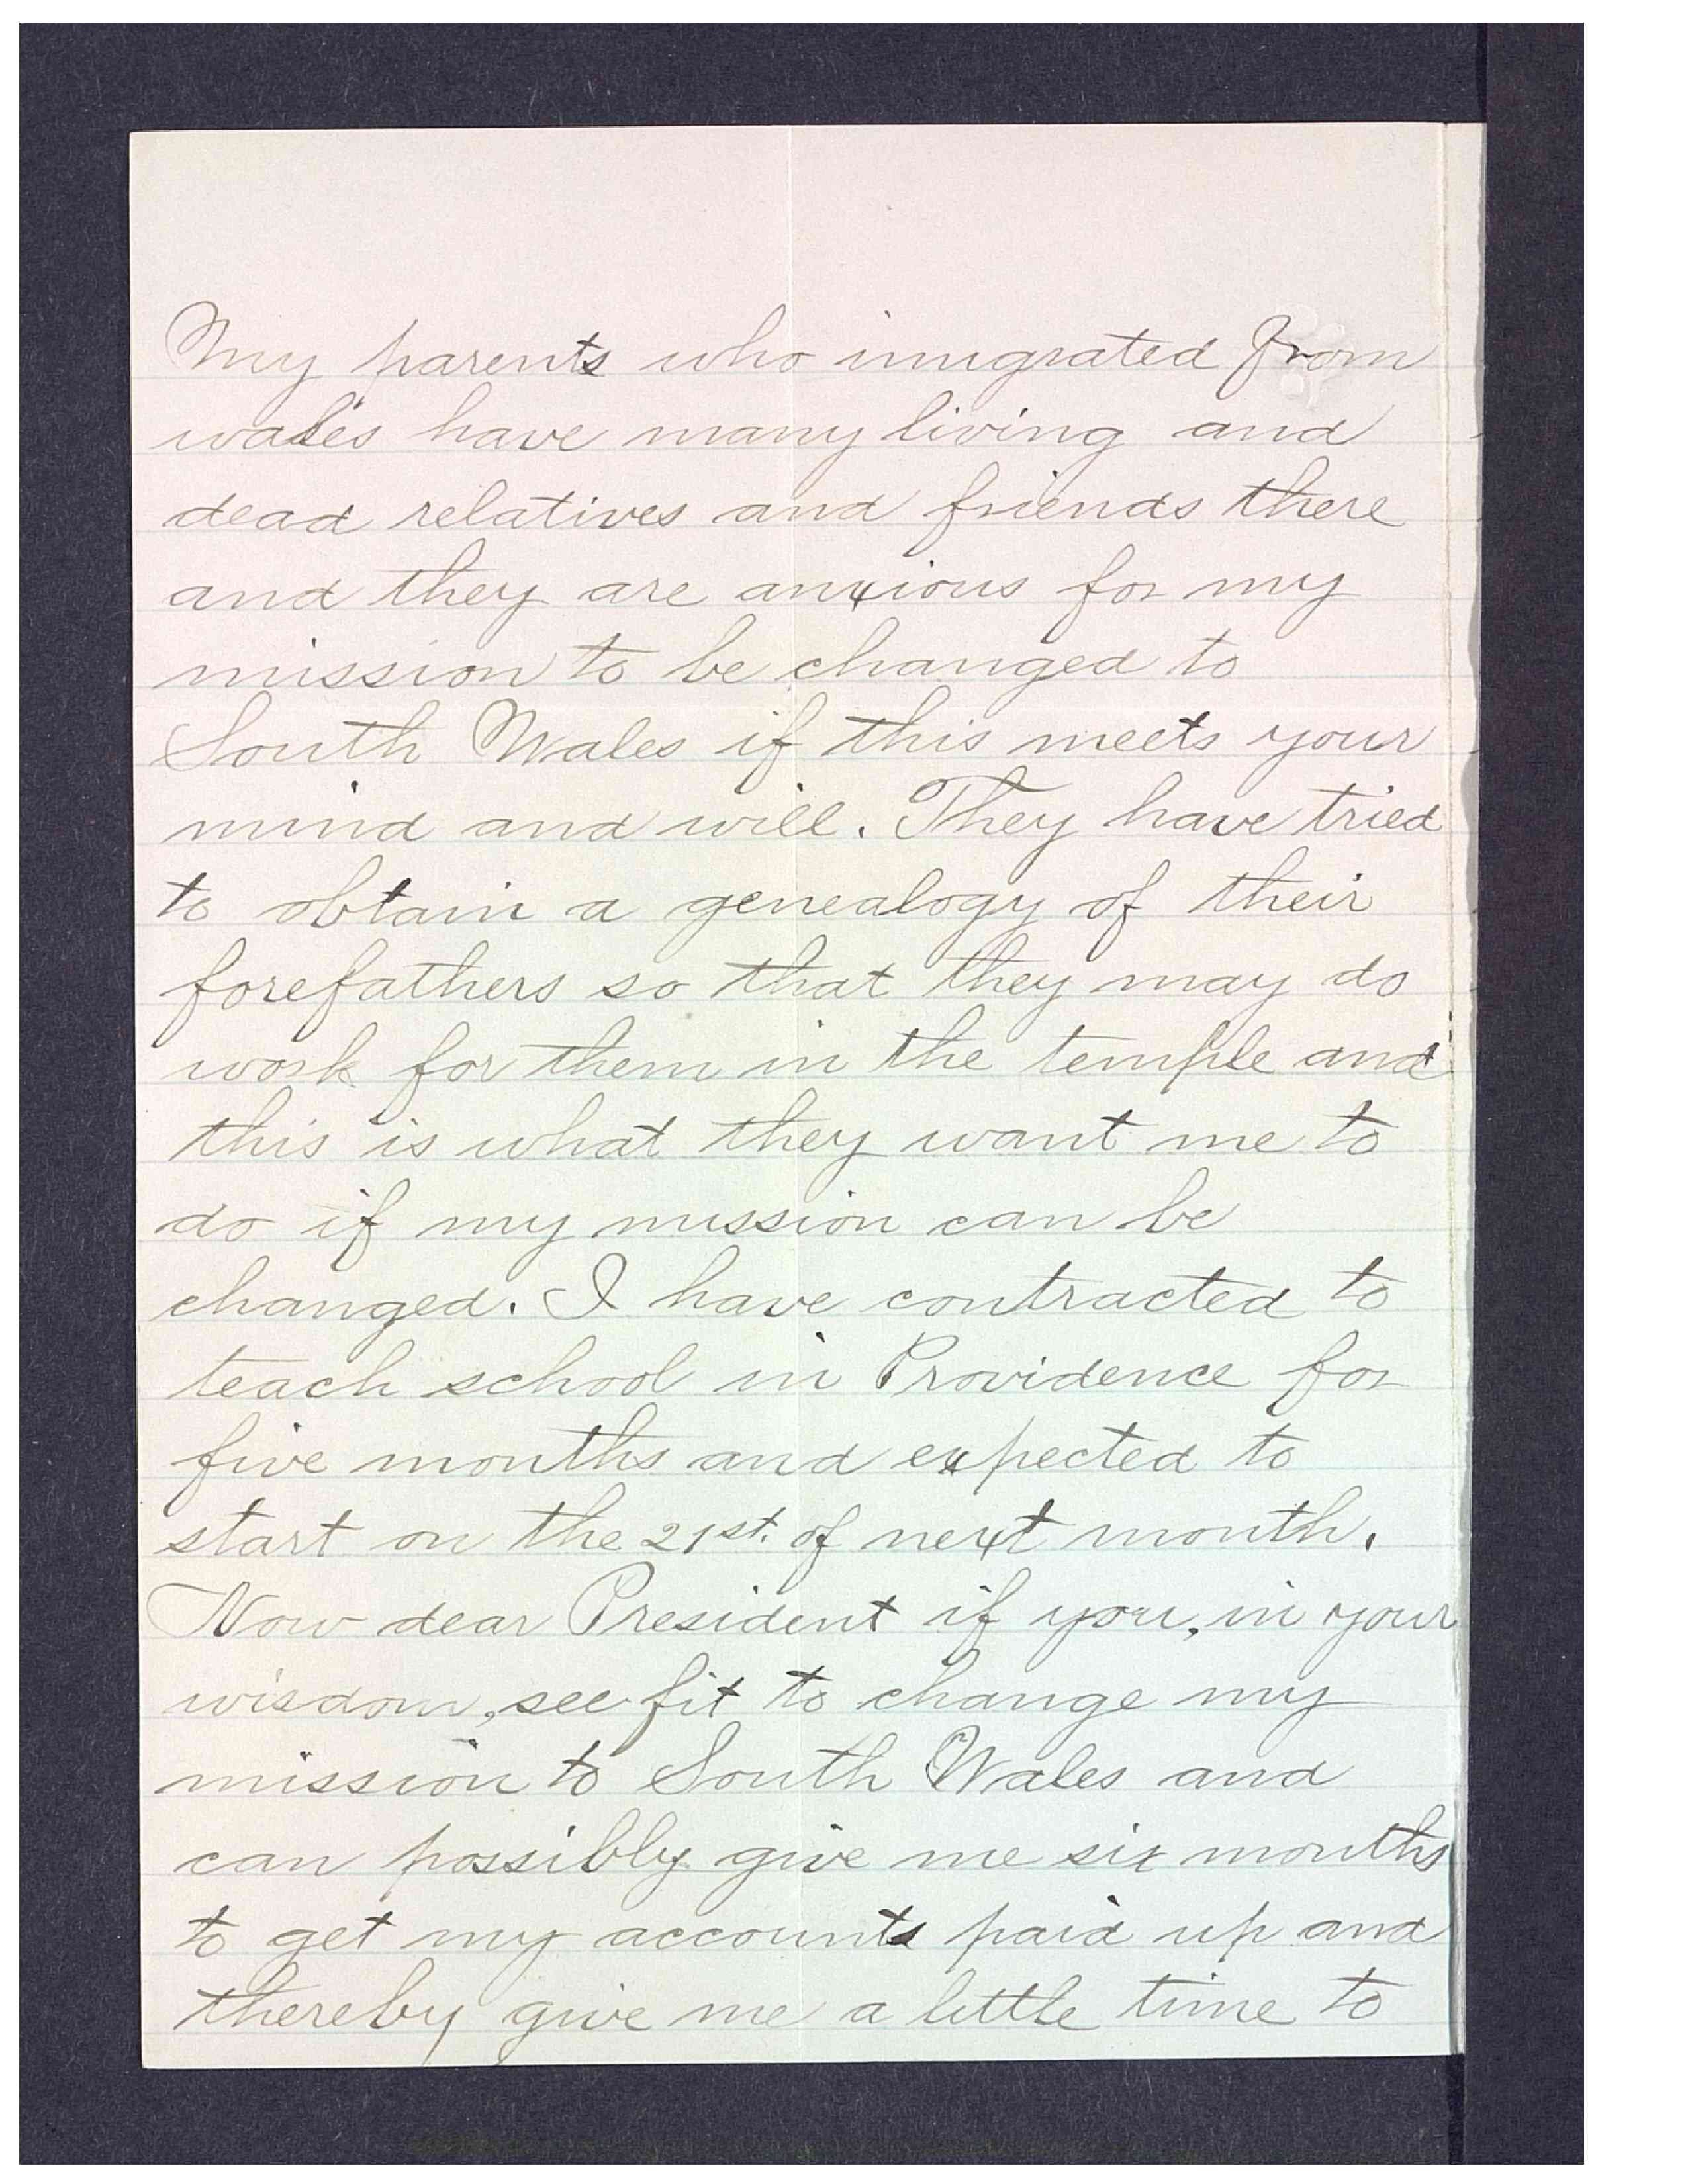 My parents who imigrated from
wales have many living and
dead relatives and friends there
and they are anxious for my
mission to be changed to
South Wales if this meets your
mind and will. They have tried
to obtain a genealogy of their
forefathers so that they may do
work for them in the temple and
this is what they want me to
do if my mission can be
changed. I have contracted to
teach school in Providence for
five months and expected to
start on the 21st. of next month.
Now dear President if you, in your
wisdom, see fit to change my
mission to South Wales and
can possibly give me six months
to get my accounts paid up and
thereby give me a little time to